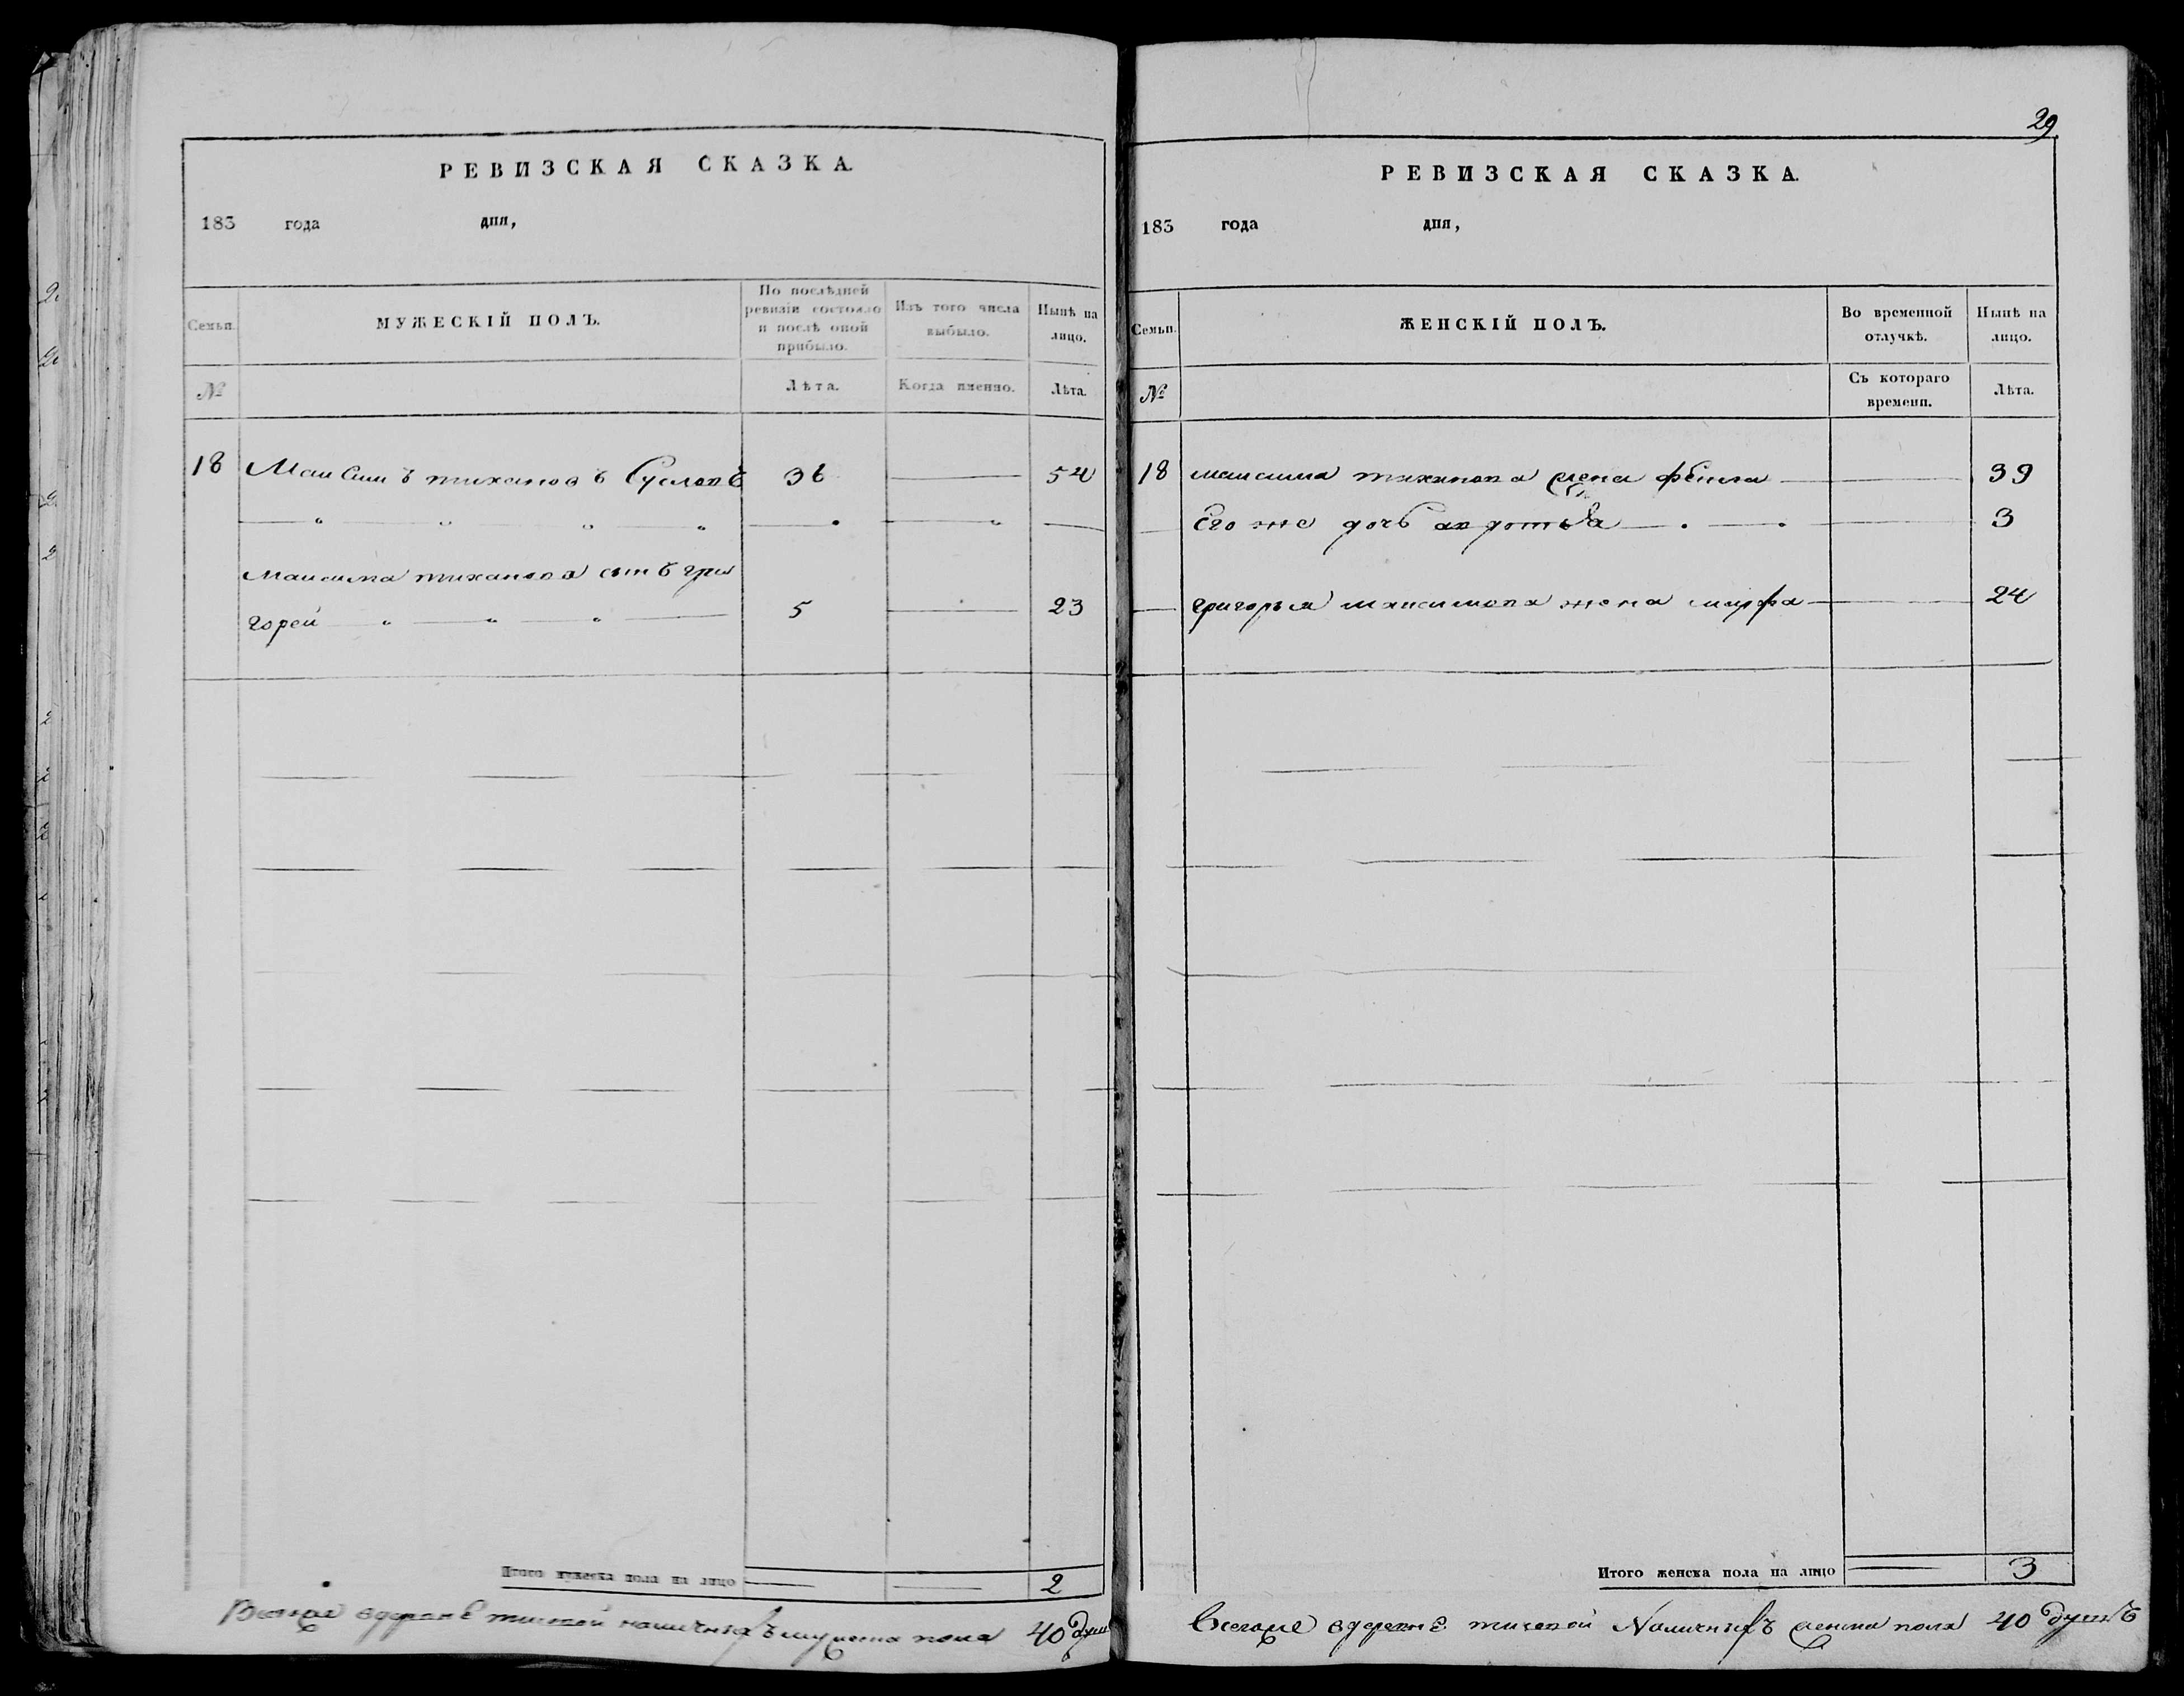 РЕВИЗСКАЯ СКАЗКА.
183 года дня,
Семьи. МУЖЕСКІЙ ПОЛЪ. По послѣдней ревизіи состояло и послѣ оной прибыло. Изъ того числа выбыло. Нынѣ на лицо.
№ Лѣта. Когда именно. Лѣта.
18 Максимъ тихановъ Сусловъ 36 54
максима тиханова сынъ гри
горей 5 23
Итого мужеска пола на лицо 2
Всегоже вдеревнѣ наличныхъ мужеска пола 40 душ
29
РЕВИЗСКАЯ СКАЗКА.
183 года дня,
Семьи. ЖЕНСКІЙ ПОЛЪ. Во временной отлучкѣ. Нынѣ на лицо.
№ Съ котораго времени. Лѣта.
18 максима тиханова жена фѣкла 39
Его же дочь авдотья 3
григорья максимова жена марфа 24
Итого женска пола на лицо 3
Всегоже вдеревнѣ наличныхъ женска пола 40 душъ